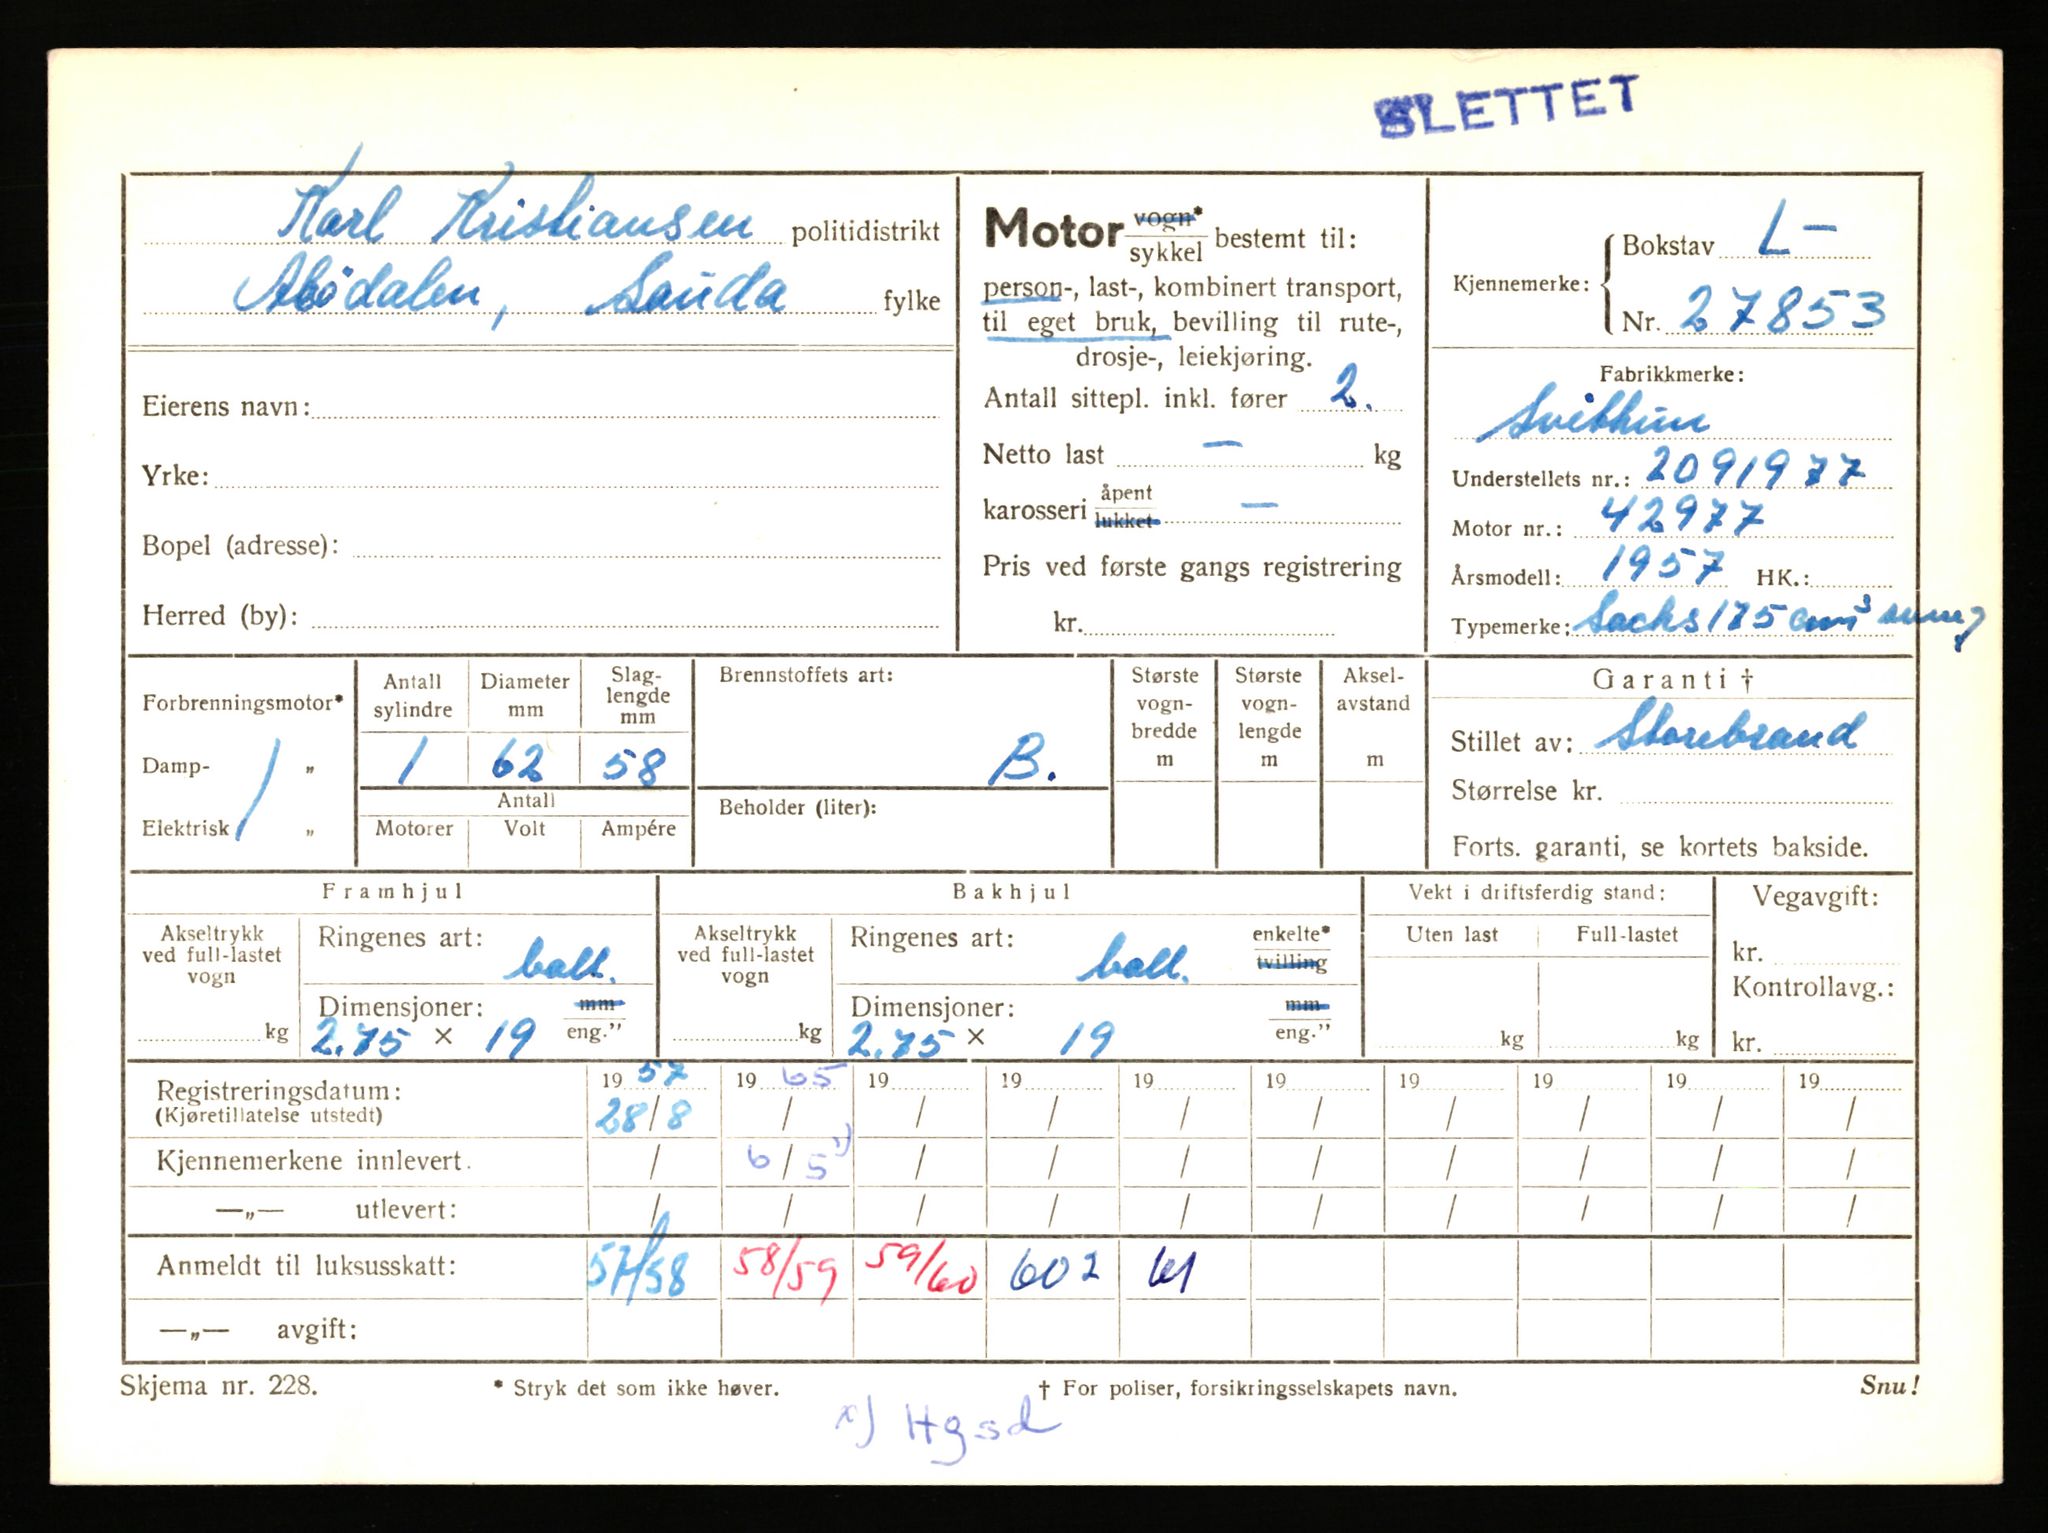 SLETTET
Karl Kristiansen politidistrikt
Åbødalen, Sauda fylke
Eierens navn:
Yrke:
Bopel (adresse):
Herred (by):
Motor vogn* / sykkel bestemt til:
person-, last-, kombinert transport,
til eget bruk, bevilling til rute-,
drosje-, leiekjøring.
Antall sittepl. inkl. fører 2.
Netto last — kg
karosseri åpent / lukket —
Pris ved første gangs registrering
kr.
Kjennemerke: Bokstav L-
Nr. 27853
Fabrikkmerke:
Svithun
Understellets nr.: 2091977
Motor nr.: 42977
Årsmodell: 1957 HK.:
Typemerke: Sachs 175 cm³
Forbrenningsmotor*
Damp- „
Elektrisk „
Antall sylindre 1
Diameter mm 62
Slag-lengde mm 58
Antall
Motorer Volt Ampére
Brennstoffets art: B.
Beholder (liter):
Største vogn-bredde m
Største vogn-lengde m
Aksel-avstand m
Garanti †
Stillet av: Storebrand
Størrelse kr.
Forts. garanti, se kortets bakside.
Framhjul
Akseltrykk ved full-lastet vogn kg
Ringenes art: ball.
Dimensjoner: mm
2.75 × 19 eng.”
Bakhjul
Akseltrykk ved full-lastet vogn kg
Ringenes art: ball. enkelte* / tvilling
Dimensjoner: mm
2.75 × 19 eng.”
Vekt i driftsferdig stand:
Uten last Full-lastet
kg kg
Vegavgift:
kr.
Kontrollavg.:
kr.
Registreringsdatum: 19 57 19 65 19 19 19 19 19 19 19 19
(Kjøretillatelse utstedt) 28/8 / / / / / / / / /
Kjennemerkene innlevert. / 6/5 x) / / / / / / / /
—„— utlevert: / / / / / / / / / /
Anmeldt til luksusskatt: 57/58 58/59 59/60 602 61
—„— avgift:
Skjema nr. 228. * Stryk det som ikke høver. † For poliser, forsikringsselskapets navn. Snu!
x) Hgsd